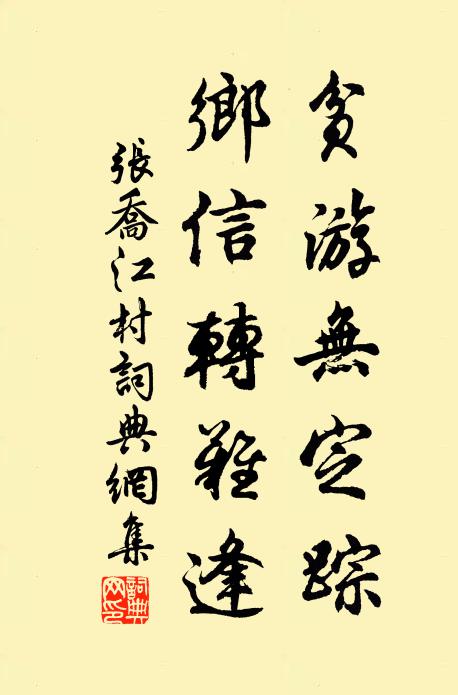 貧游無定踪
鄉信轉難逢
張喬江村詞典網集
詞典網印